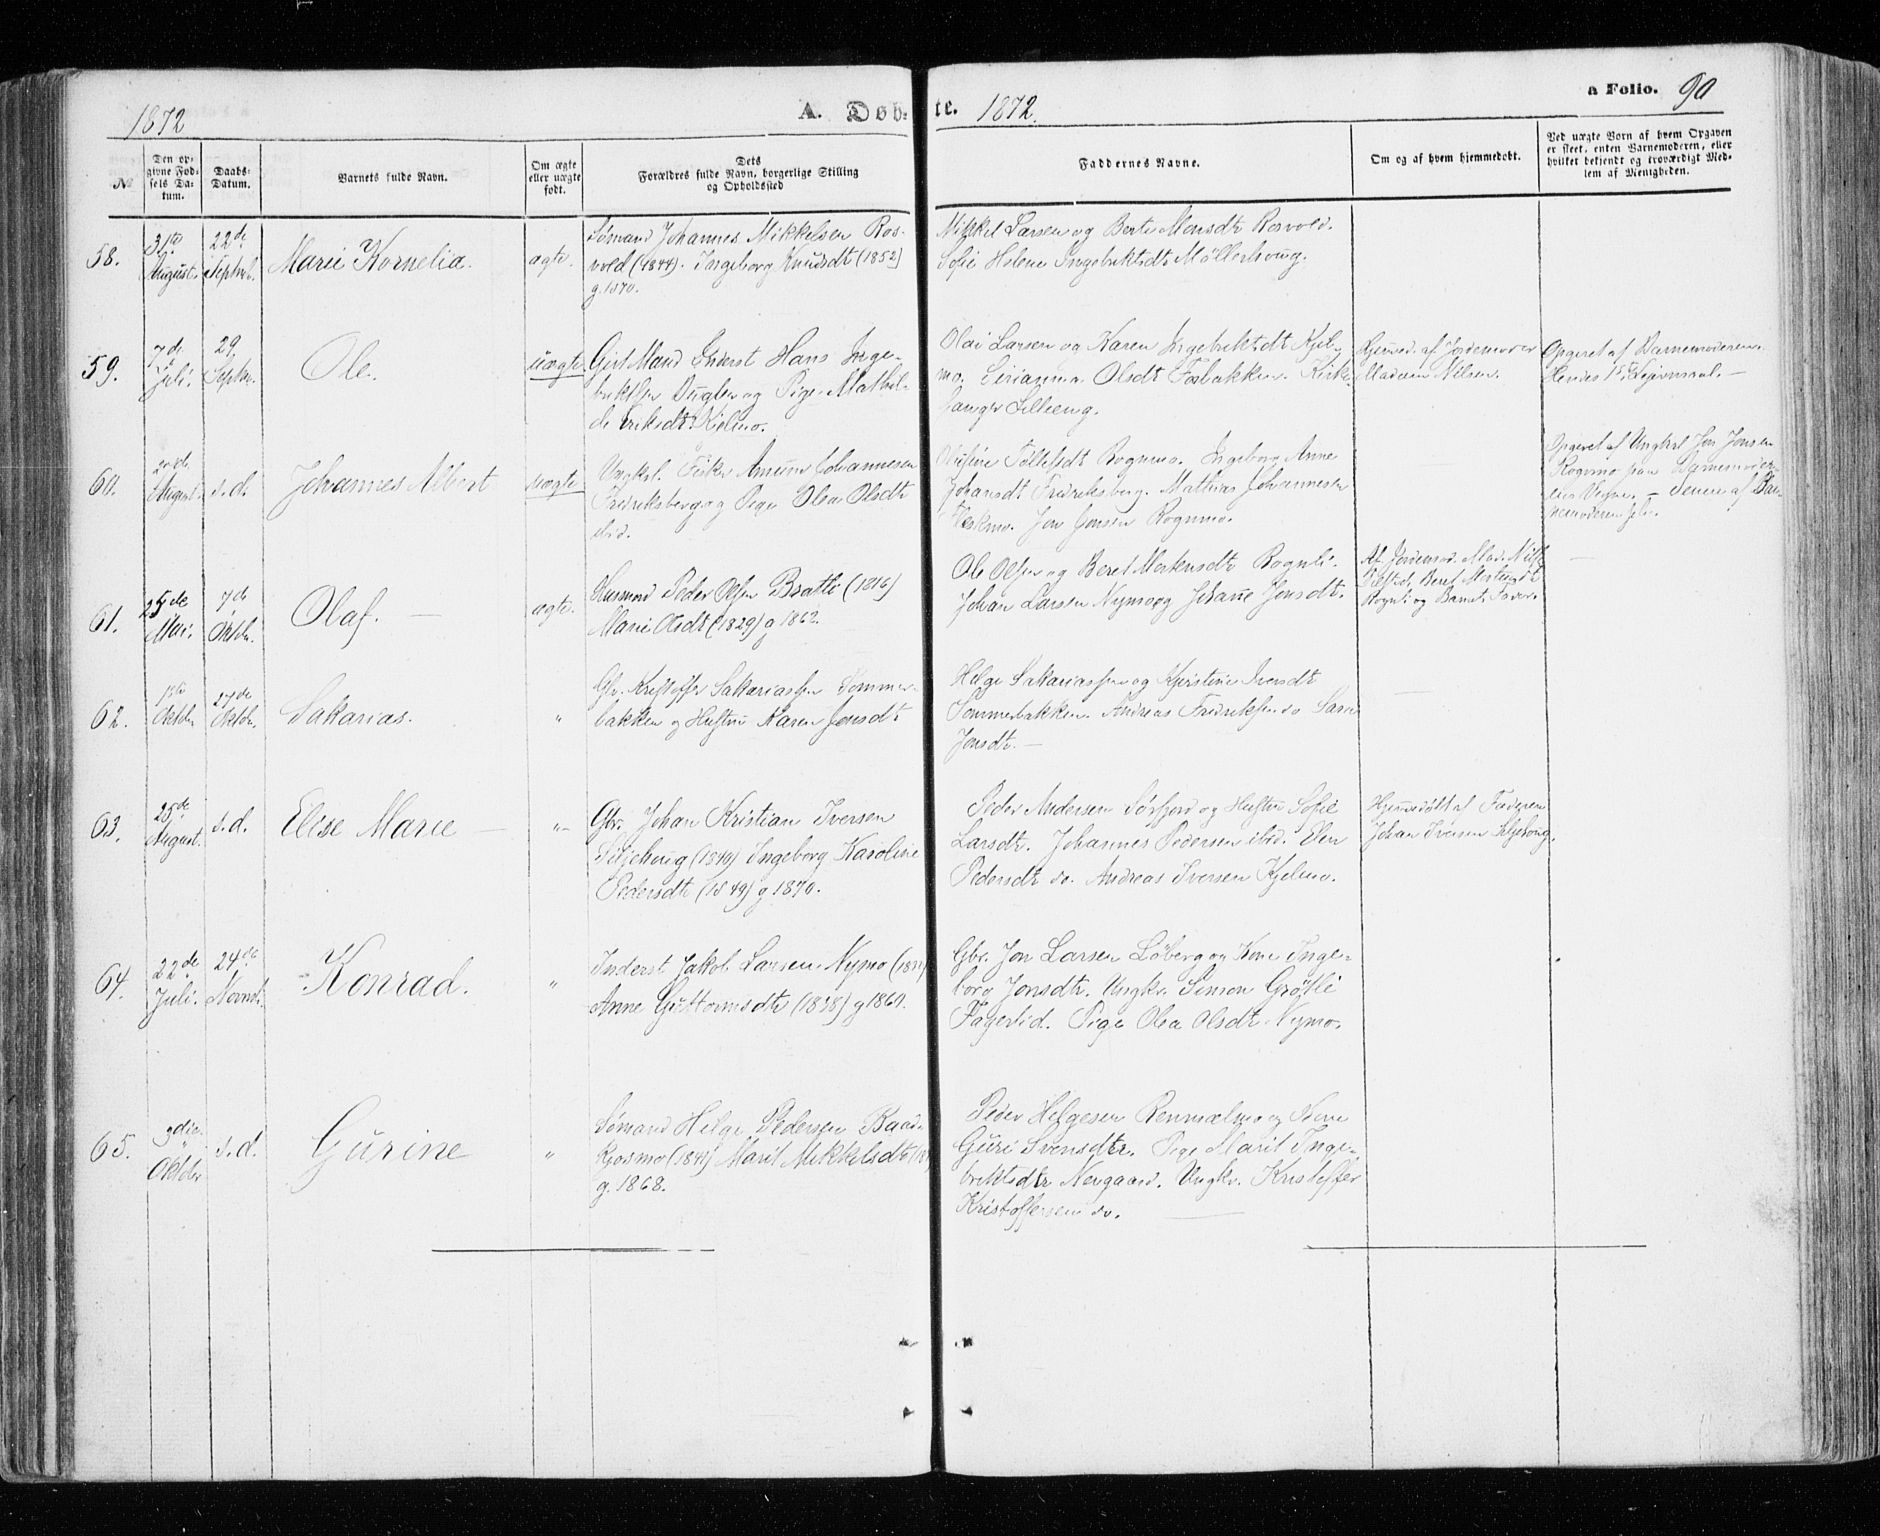 1872
A. Døb-
te. 1872.
a Folio. 90
№
Den op-
givne Fød-
sels Da-
tum.
Daabs-
Datum.
Barnets fulde Navn.
Om ægte
eller uægte
født.
Dets
Forældres fulde Navn, borgerlige Stilling
og Opholdssted
Faddernes Navne.
Om og af hvem hjemmedøbt.
Ved uægte Børn af hvem Opgaven
er skeet, enten Barnemoderen, eller
hvilket bekjendt og troværdigt Med-
lem af Menigheden.
58.
31te
August.
22de
Septbr.
Marie Kornelia.
ægte.
Sømand Johannes Mikkelsen Ros-
vold (1844). Ingeborg Knudsdt (1852)
g. 1870.
Mikkel Larsen og Berte Monsdt Rosvold.
Sofie Helene Ingebriktsdt Møllerhoug.
59.
7de
Juli.
29
Septbr.
Ole.
uægte
Gift Mand Inderst Hans Inge-
briktsen og Pige Mathil-
de Eriksdt Kjelmo.
Olai Larsen og Karen Ingebriktsdt Kjel-
mo. Olsdt Fosbakken. Kirke-
sanger Lilleeng.
Hjemmed. af Jordemoder
Madam Nilsen.
Opgivet af Barnemoderen.
Hendes 1ste Leiermaal. —
60.
August.
s.d.
Johannes Albert
uægte
Ungkl. Fisker Johannesen
Fredriksberg og Pige Olea Olsdt
ibid.
Tollefsdt Rognmo. Ingeborg Anne
Johansdt Fredriksberg. Mathias Johannesen
Jon Jonsen Rognmo.
Opgivet af Ungkarl Jon Jonsen
Rognmo paa Barnemoder-
ens Vegne. — Senere af Bar-
nemoderen selv.
61.
25de
Mai.
7de
Oktbr.
Olaf. —
ægte.
Husmand Peder Olsen Bratli (1816)
Marie Olsdt (1829) g 1862.
Ole Olsen og Beret Mortensdt Rognli.
Johan Larsen Nymo og Johanne Jonsdt.
Af Jordemod. Mad. Nilsen
Beret Mortensdt
Rognli og Barnets Fader.
—
62.
Oktbr
27de
Oktbr.
Sakarias.
"
Gbr. Kristoffer Sakariassen Sommer-
bakken og Hustru Karen Jonsdt
Helge Sakariassen og Kjerstine Iversdt
Sommerbakken. Andreas Fredriksen do Sara
Jonsdt. —
63.
25de
August.
s.d.
Elise Marie —
"–
Gbr. Johan Kristian Iversen
Siljehaug (1840) Ingeborg Karoline
Pedersdt (1849) g 1870.
Peder Andersen Sørfjord og Hustru Sofie
Larsdt. Johannes Pedersen ibid. Elen
Pedersdt do. Andreas Iversen Kjelmo.
Hjemmedøbt af Faderen
Johan Iversen Siljehoug.
64.
22de
Juli.
24de
Novmb.
Konrad.
"
Inderst Jakob Larsen Nymo
Anne Guttormsdt (1828) g 1861.
Gbr. Jon Larsen Løberg og Kone Inge-
borg Jonsdt. Ungkr. Simon Grøtli
Fagerlid. Pige Olea Olsdt Nymo.
65.
3die
Oktbr
s.d.
Gurine
"
Sømand Helge Pedersen
(1841) Marit Mikkelsdt
g. 1868.
Peder Helgesen Renmælmo og Kone
Guri Svensdtr. Pige Marit Inge-
briktsdtr Neugaard. Ungkr. Kristoffer
Kristoffersen do.